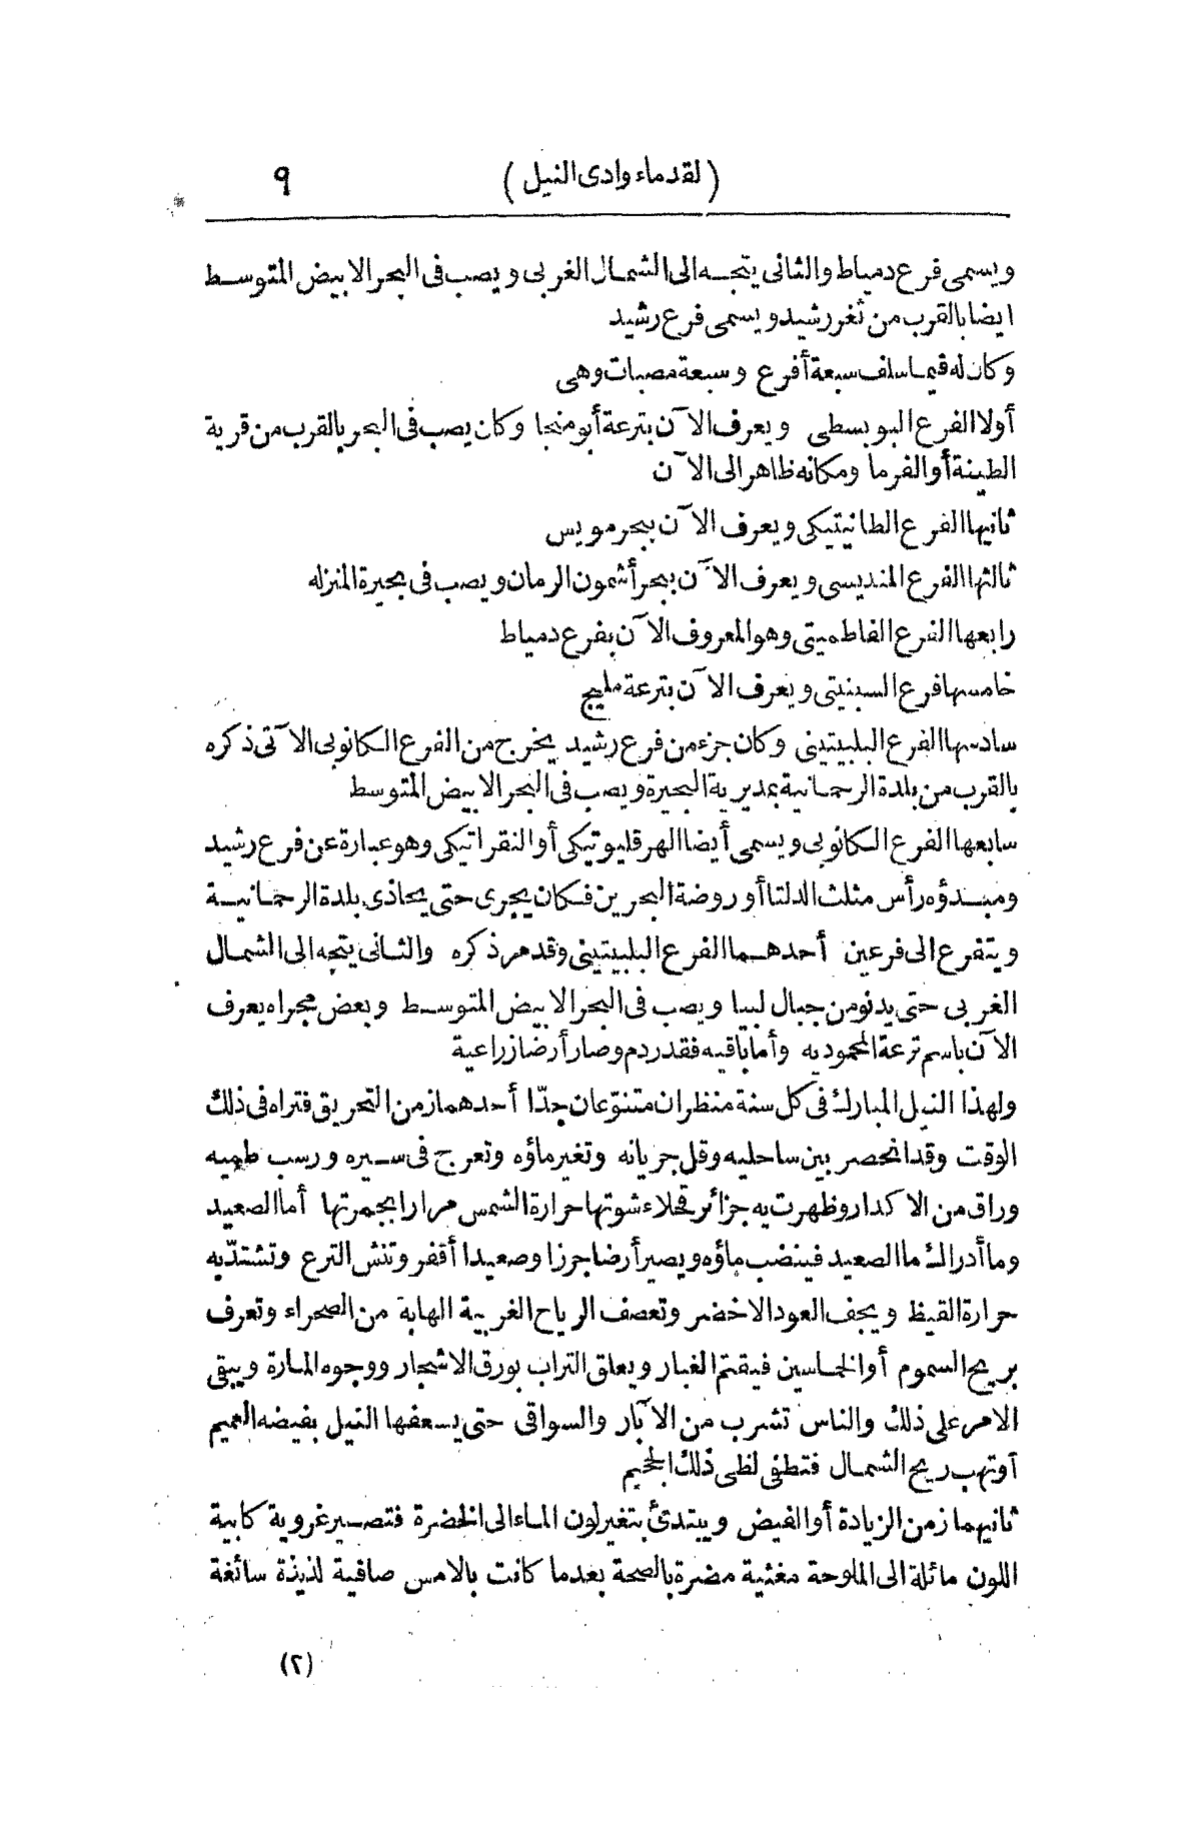 (لقدماء وادى النيل) ٩
ويسمى فرع دمياط والثانى يتجه الى الشمال الغربى ويصب فى البحر الابيض المتوسط
ايضا بالقرب من ثغر رشيد ويسمى فرع رشيد
وكان له فيما سلف سبعة أفرع وسبعة مصبات وهى
أولا الفرع البوبسطى ويعرف الآن بترعة أبو منجا وكان يصب فى البحر بالقرب من قرية
الطينة أو الفرما ومكانه ظاهر الى الآن
ثانيها الفرع الطانيتيكى ويعرف الآن ببحر مويس
ثالثها الفرع المنديسى ويعرف الآن ببحر أشمون الرمان ويصب فى بحيرة المنزله
رابعها الفرع الفاطميتى وهو المعروف الآن بفرع دمياط
خامسها فرع السبنيتى ويعرف الآن بترعة مليج
سادسها الفرع البلبيتينى وكان جزء من فرع رشيد يخرج من الفرع الكانوبى الآتى ذكره
بالقرب من بلدة الرحمانية بمديرية البحيرة ويصب فى البحر الابيض المتوسط
سابعها الفرع الكانوبى ويسمى أيضا الهرقليوتيكى أو النقراتيكى وهو عبارة عن فرع رشيد
ومبدؤه رأس مثلث الدلتا أو روضة البحرين فكان يجرى حتى يحاذى بلدة الرحمانية
ويتفرع الى فرعين أحدهما الفرع البلبيتينى وقد مر ذكره والثانى يتجه الى الشمال
الغربى حتى يدنو من جبال لبيا ويصب فى البحر الابيض المتوسط وبعض مجراه يعرف
الآن باسم ترعة المحموديه وأما باقيه فقد ردم وصار أرضا زراعية
ولهذا النيل المبارك فى كل سنة منظران متنوّعان جدّا أحدهما زمن التحريق فتراه فى ذلك
الوقت وقد انحصر بين ساحليه وقل جريانه وتغير ماؤه وتعرج فى سيره ورسب طميه
وراق من الاكدار وظهرت به جزائر قحلاء شوتها حرارة الشمس مرارا بجمرتها أما الصعيد
وما أدراك ما الصعيد فينضب ماؤه ويصير أرضا جرزا وصعيدا أقفر وتنش الترع وتشتدّ به
حرارة القيظ ويجف العود الاخضر وتعصف الرياح الغربية الهابة من الصحراء وتعرف
بريح السموم أو الخماسين فيقتم الغبار ويعلق التراب بورق الاشجار ووجوه المارة ويبقى
الامر على ذلك والناس تشرب من الآبار والسواقى حتى يسعفها النيل بفيضه العميم
أو تهب ريح الشمال فتطفى لظى ذلك الجحيم
ثانيهما زمن الزيادة أو الفيض ويبتدئ بتغير لون الماء الى الخضرة فتصير غروية كابية
اللون مائلة الى الملوحة مغثية مضرة بالصحة بعدما كانت بالامس صافية لذيذة سائغة
(٢)